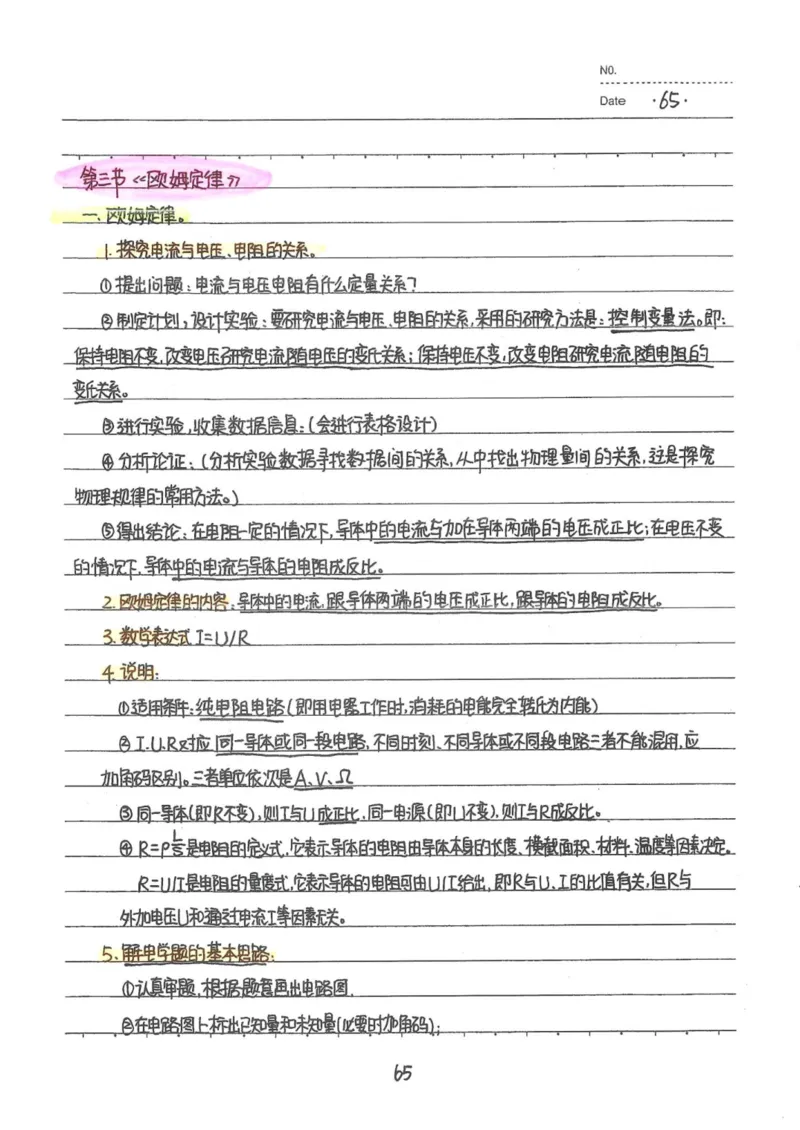 NO.
Date ·65·
第三节《欧姆定律》
一、欧姆定律。
1.探究电流与电压、电阻的关系。
①提出问题:电流与电压电阻有什么定量关系?
②制定计划,设计实验:要研究电流与电压、电阻的关系,采用的研究方法是:控制变量法。即:
保持电阻不变,改变电压研究电流随电压的变化关系;保持电压不变,改变电阻研究电流随电阻的
变化关系。
③进行实验,收集数据信息:(会进行表格设计)
④分析论证:(分析实验数据寻找数据间的关系,从中找出物理量间的关系,这是探究
物理规律的常用方法。)
⑤得出结论:在电阻一定的情况下,导体中的电流与加在导体两端的电压成正比;在电压不变
的情况下,导体中的电流与导体的电阻成反比。
2.欧姆定律的内容:导体中的电流,跟导体两端的电压成正比,跟导体的电阻成反比。
3.数学表达式 I=U/R
4.说明:
①适用条件:纯电阻电路(即用电器工作时,消耗的电能完全转化为内能)
②I、U、R对应同一导体或同一段电路,不同时刻、不同导体或不同段电路三者不能混用,应
加角码区别。三者单位依次是A、V、Ω
③同一导体(即R不变),则I与U成正比,同一电源(即U不变),则I与R成反比。
④R=ρL/S是电阻的定义式,它表示导体的电阻由导体本身的长度、横截面积、材料、温度等因素决定。
R=U/I是电阻的量度式,它表示导体的电阻可由U/I给出,即R与U、I的比值有关,但R与
外加电压U和通过电流I等因素无关。
5.解电学题的基本思路:
①认真审题,根据题意画出电路图.
②在电路图上标出已知量和未知量(必要时加角码);
65